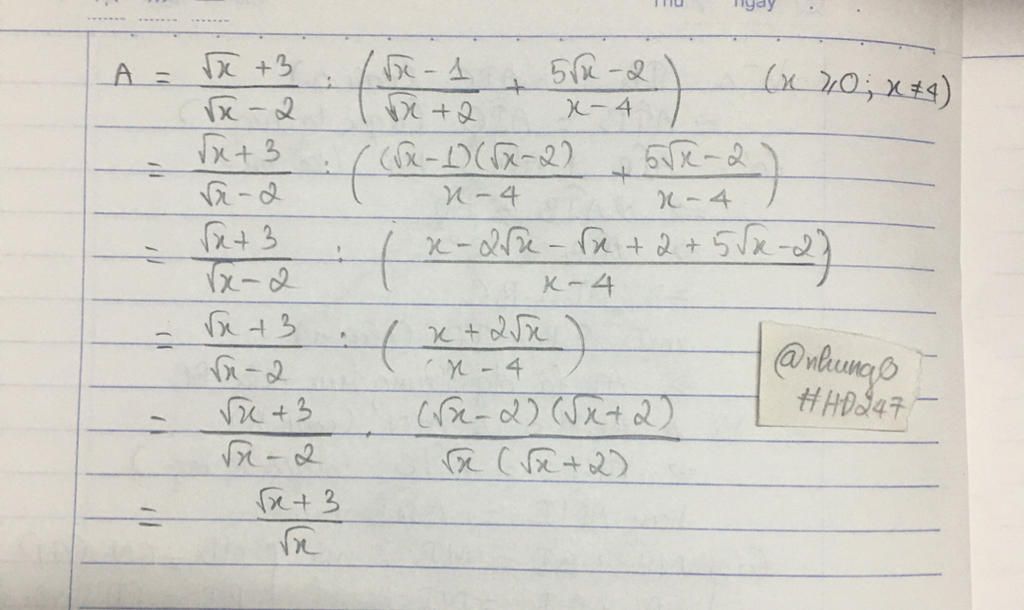 Thứ ngày
A = (√x + 3)/(√x − 2) : ((√x − 1)/(√x + 2) + (5√x − 2)/(x − 4)) (x ≥ 0; x ≠ 4)
= (√x + 3)/(√x − 2) : (((√x − 1)(√x − 2))/(x − 4) + (5√x − 2)/(x − 4))
= (√x + 3)/(√x − 2) : ((x − 2√x − √x + 2 + 5√x − 2)/(x − 4))
= (√x + 3)/(√x − 2) : ((x + 2√x)/(x − 4))
= (√x + 3)/(√x − 2) . ((√x − 2)(√x + 2))/(√x (√x + 2))
= (√x + 3)/√x
#HD247